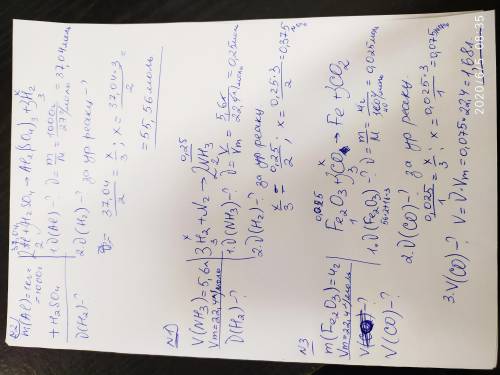 N2)
m(Al)=1кг=
=1000г
+H2SO4
ν(H2)-?
37,04 x
2Al+3H2SO4→Al2(SO4)3+3H2
2 3
1. ν(Al)-? ν=m/M=1000г/27г/моль=37,04моль
2. ν(H2)-? за ур реакц-?
37,04/2=x/3; x=37,04·3/2=
=55,56моль
N1)
V(NH3)=5,6л
Vm=22,4л/моль
ν(H2)-?
x 0,25
3H2+N2→2NH3
3 2
1. ν(NH3)-? ν=V/Vm=5,6л/22,4л/моль=0,25моль
2. ν(H2)-? за ур реакц
x/3=0,25/2; x=0,25·3/2=0,375
N3
m(Fe2O3)=4г
Vm=22,4л/моль
V(CO)-?
0,025 x
Fe2O3+3CO→Fe+3CO2
1 3
1. ν(Fe2O3)-? ν=m/M=4г/160г/моль=0,025моль
56·2+16·3
2. ν(CO)-? за ур реакц.
0,025/1=x/3; x=0,025·3/1=0,075
3. V(CO)-? V=ν·Vm=0,075·22,4=1,68л
2020/6/5 08:31